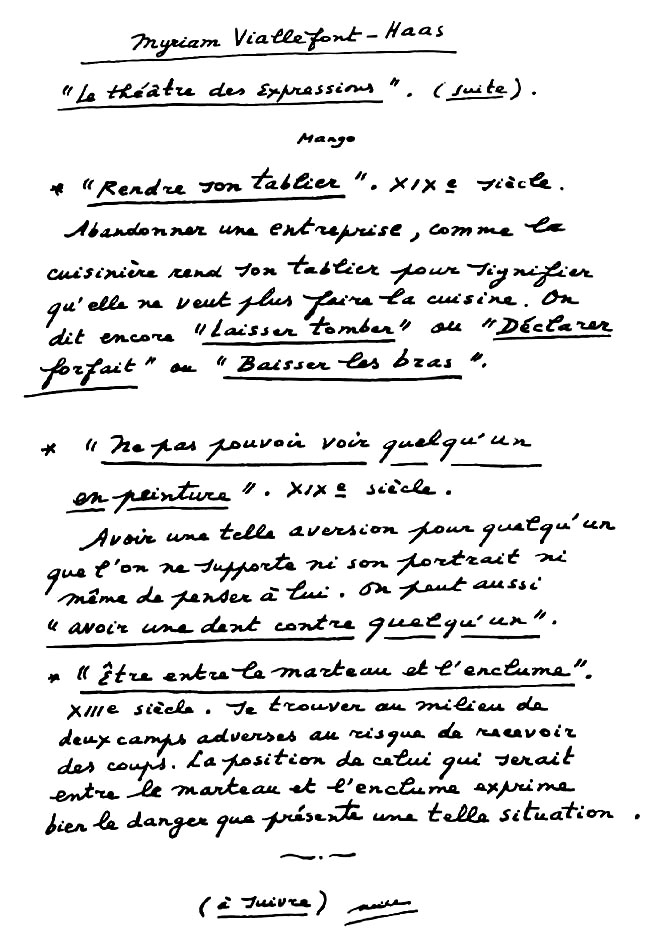 Myriam Viallefont-Haas
"Le théâtre des Expressions". (suite).
Mango
* "Rendre son tablier". XIXe siècle.
Abandonner une entreprise, comme la
cuisinière rend son tablier pour signifier
qu'elle ne veut plus faire la cuisine. On
dit encore "Laisser tomber" ou "Déclarer
forfait" ou "Baisser les bras".
* "Ne pas pouvoir voir quelqu'un
en peinture". XIXe siècle.
Avoir une telle aversion pour quelqu'un
que l'on ne supporte ni son portrait ni
même de penser à lui. On peut aussi
"avoir une dent contre quelqu'un".
* "Être entre le marteau et l'enclume".
XIIIe siècle. Se trouver au milieu de
deux camps adverses au risque de recevoir
des coups. La position de celui qui serait
entre le marteau et l'enclume exprime
bien le danger que présente une telle situation.
(à suivre)